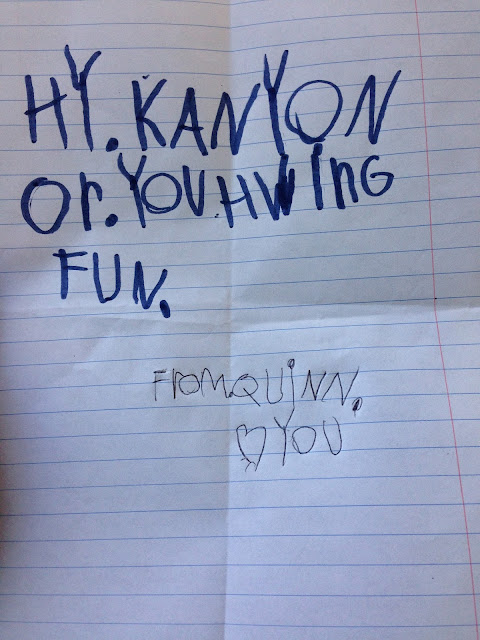 HY. KANYON
Or. YOU. HWING
FUN.
From. QUiNN.
♡ YOU